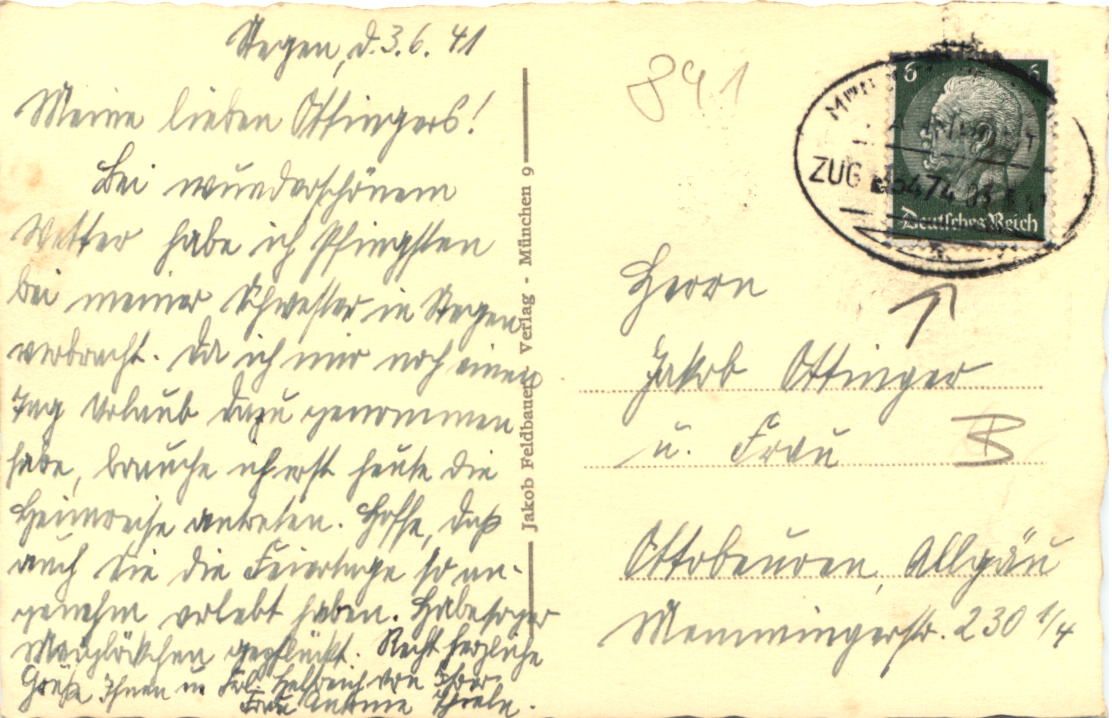 Stegen, d. 3.6.41
Meine lieben Ottingers!
Bei wunderschönem
Wetter habe ich Pfingsten
bei meiner Schwester in Stegen
verbracht. Da ich mir noch einen
Tag Urlaub dazu genommen
habe, brauche ich erst heute die
Heimreise antreten. Hoffe, daß
auch Sie die Feiertage so an-
genehm verlebt haben. Habe sogar
Maiglöckchen gepflückt. Recht herzliche
Grüße Ihnen u. Frl. von Ihrer
Frau Thiele.
Jakob Feldbauer Verlag - München 9
841
6 6
Deutsches Reich
ZUG 474
Herrn
Jakob Ottinger
u. Frau
Ottobeuren, Allgäu
Memmingerstr. 230 1/4